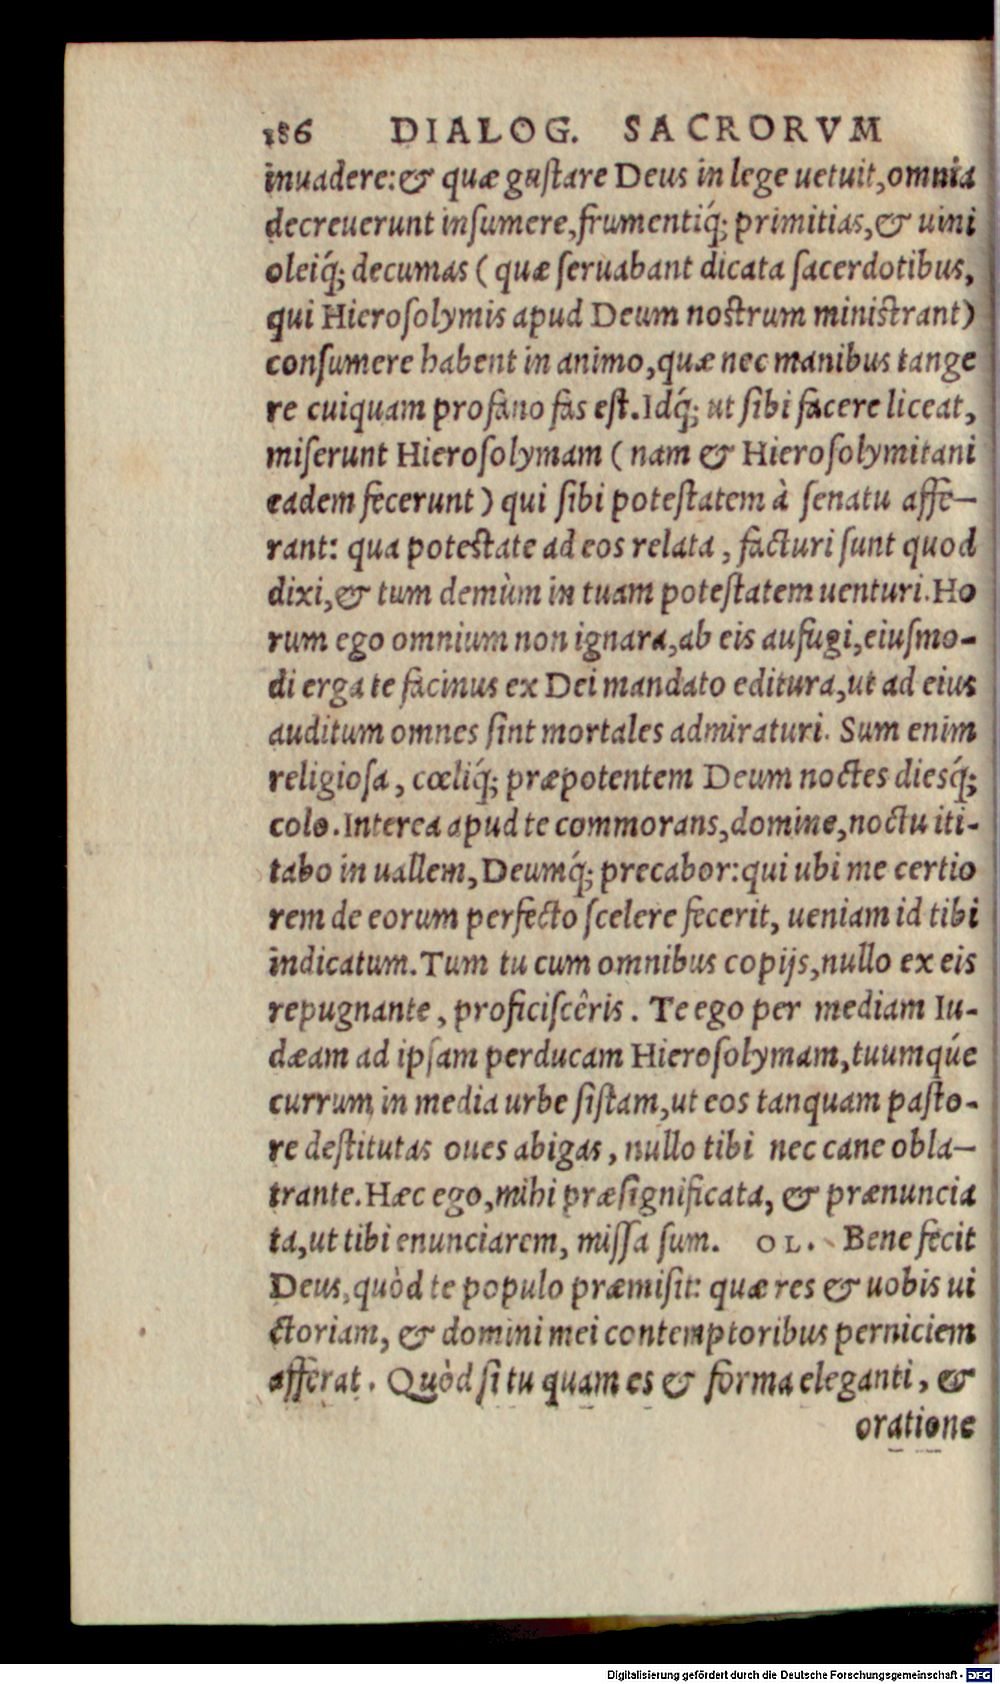 186 DIALOG. SACRORVM
inuadere: & quæ gustare Deus in lege uetuit, omnia
decreuerunt insumere, frumentiq́; primitias, & uini
oleiq́; decumas ( quæ seruabant dicata sacerdotibus,
qui Hierosolymis apud Deum nostrum ministrant)
consumere habent in animo, quæ nec manibus tange
re cuiquam profano fas est. Idq́; ut sibi facere liceat,
miserunt Hierosolymam ( nam & Hierosolymitani
eadem fecerunt ) qui sibi potestatem à senatu affe-
rant: qua potestate ad eos relata, facturi sunt quod
dixi, & tum demùm in tuam potestatem uenturi. Ho
rum ego omnium non ignara, ab eis aufugi, eiusmo-
di erga te facinus ex Dei mandato editura, ut ad eius
auditum omnes sint mortales admiraturi. Sum enim
religiosa, cœliq́; præpotentem Deum noctes diesq́;
colo. Interea apud te commorans, domine, noctu iti-
tabo in uallem, Deumq́; precabor: qui ubi me certio
rem de eorum perfecto scelere fecerit, ueniam id tibi
indicatum. Tum tu cum omnibus copijs, nullo ex eis
repugnante, proficiscêris. Te ego per mediam Iu-
dæam ad ipsam perducam Hierosolymam, tuumq́ue
currum in media urbe sistam, ut eos tanquam pasto-
re destitutas oues abigas, nullo tibi nec cane obla-
trante. Hæc ego, mihi præsignificata, & prænuncia
ta, ut tibi enunciarem, missa sum. OL. Bene fecit
Deus, quòd te populo præmisit: quæ res & uobis ui
ctoriam, & domini mei contemptoribus perniciem
afferat. Quòd si tu quam es & forma eleganti, &
oratione
Digitalisierung gefördert durch die Deutsche Forschungsgemeinschaft - DFG